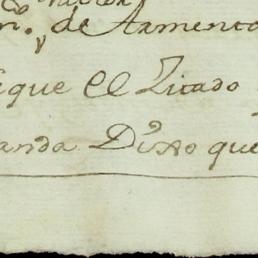 n.º de Armento
ique el Zitado
anda Dixo que